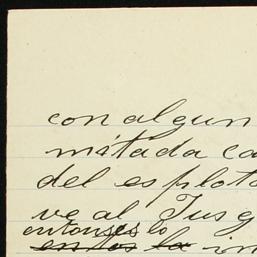 con algun
mitada ca
del esplota
ve al Jusg
entonses lo
entos la in